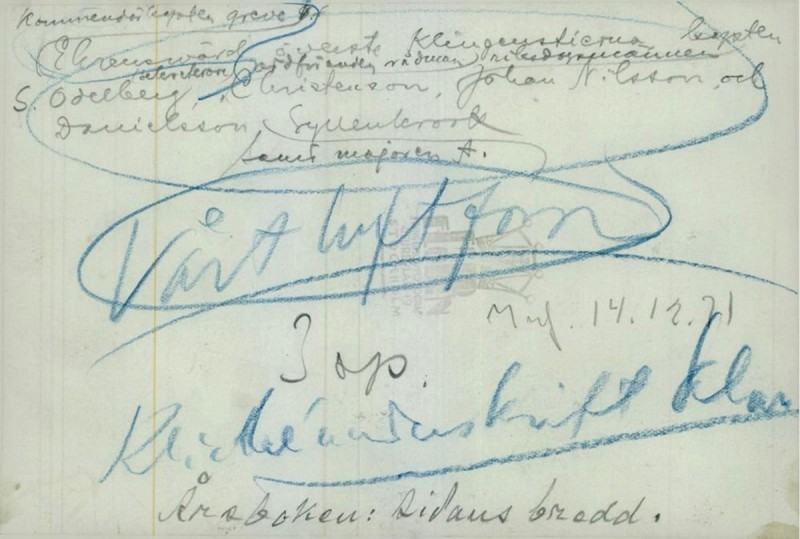 Kommendörkapten greve A.
Ehrensvärd, överste Klingenstierna, kapten
direktören ordföranden rådman riksdagsmännen
S. Odelberg, Christenson, Johan Nilsson, och
Danielsson, Gyllenkrook
samt majoren A.
Vårt luftförsv
3 sp.
14.12.21
Klichéunderskrift klar
Årsboken: sidans bredd.